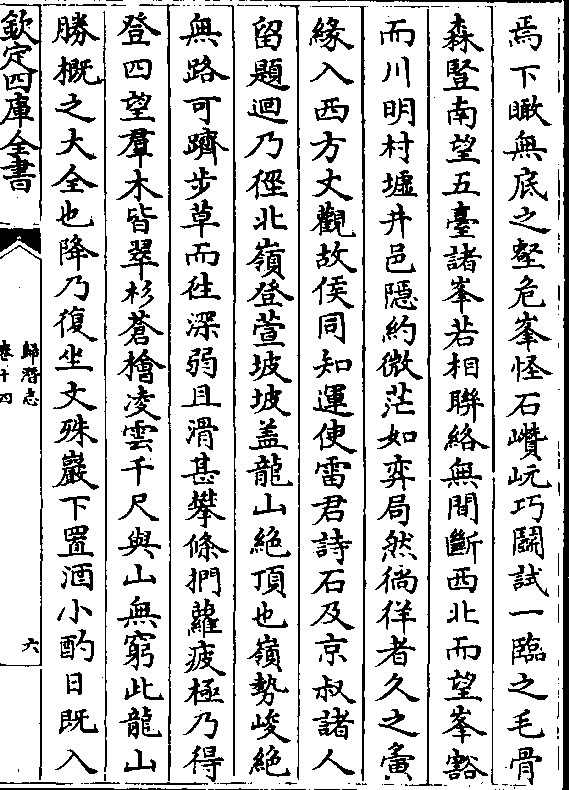 焉下瞰無底之壑危峯怪石巑岏巧鬭試一臨之毛骨
森豎南望五臺諸峯若相聯絡無間斷西北而望峯豁
而川明村墟井邑隠約微茫如弈局然徜徉者久之夤
緣入西方丈觀故侯同知運使雷君詩石及京叔諸人
留題迴乃徑北嶺登萱坡坡蓋龍山絶頂也嶺勢峻絶
無路可躋步草而徃深弱且滑甚攀條捫蘿疲極乃得
登四望羣木皆翠杉蒼檜凌雲千尺與山無窮此龍山
勝概之大全也降乃復坐文殊巖下置酒小酌日既入
欽定四庫全書
歸潛志
卷十四
六